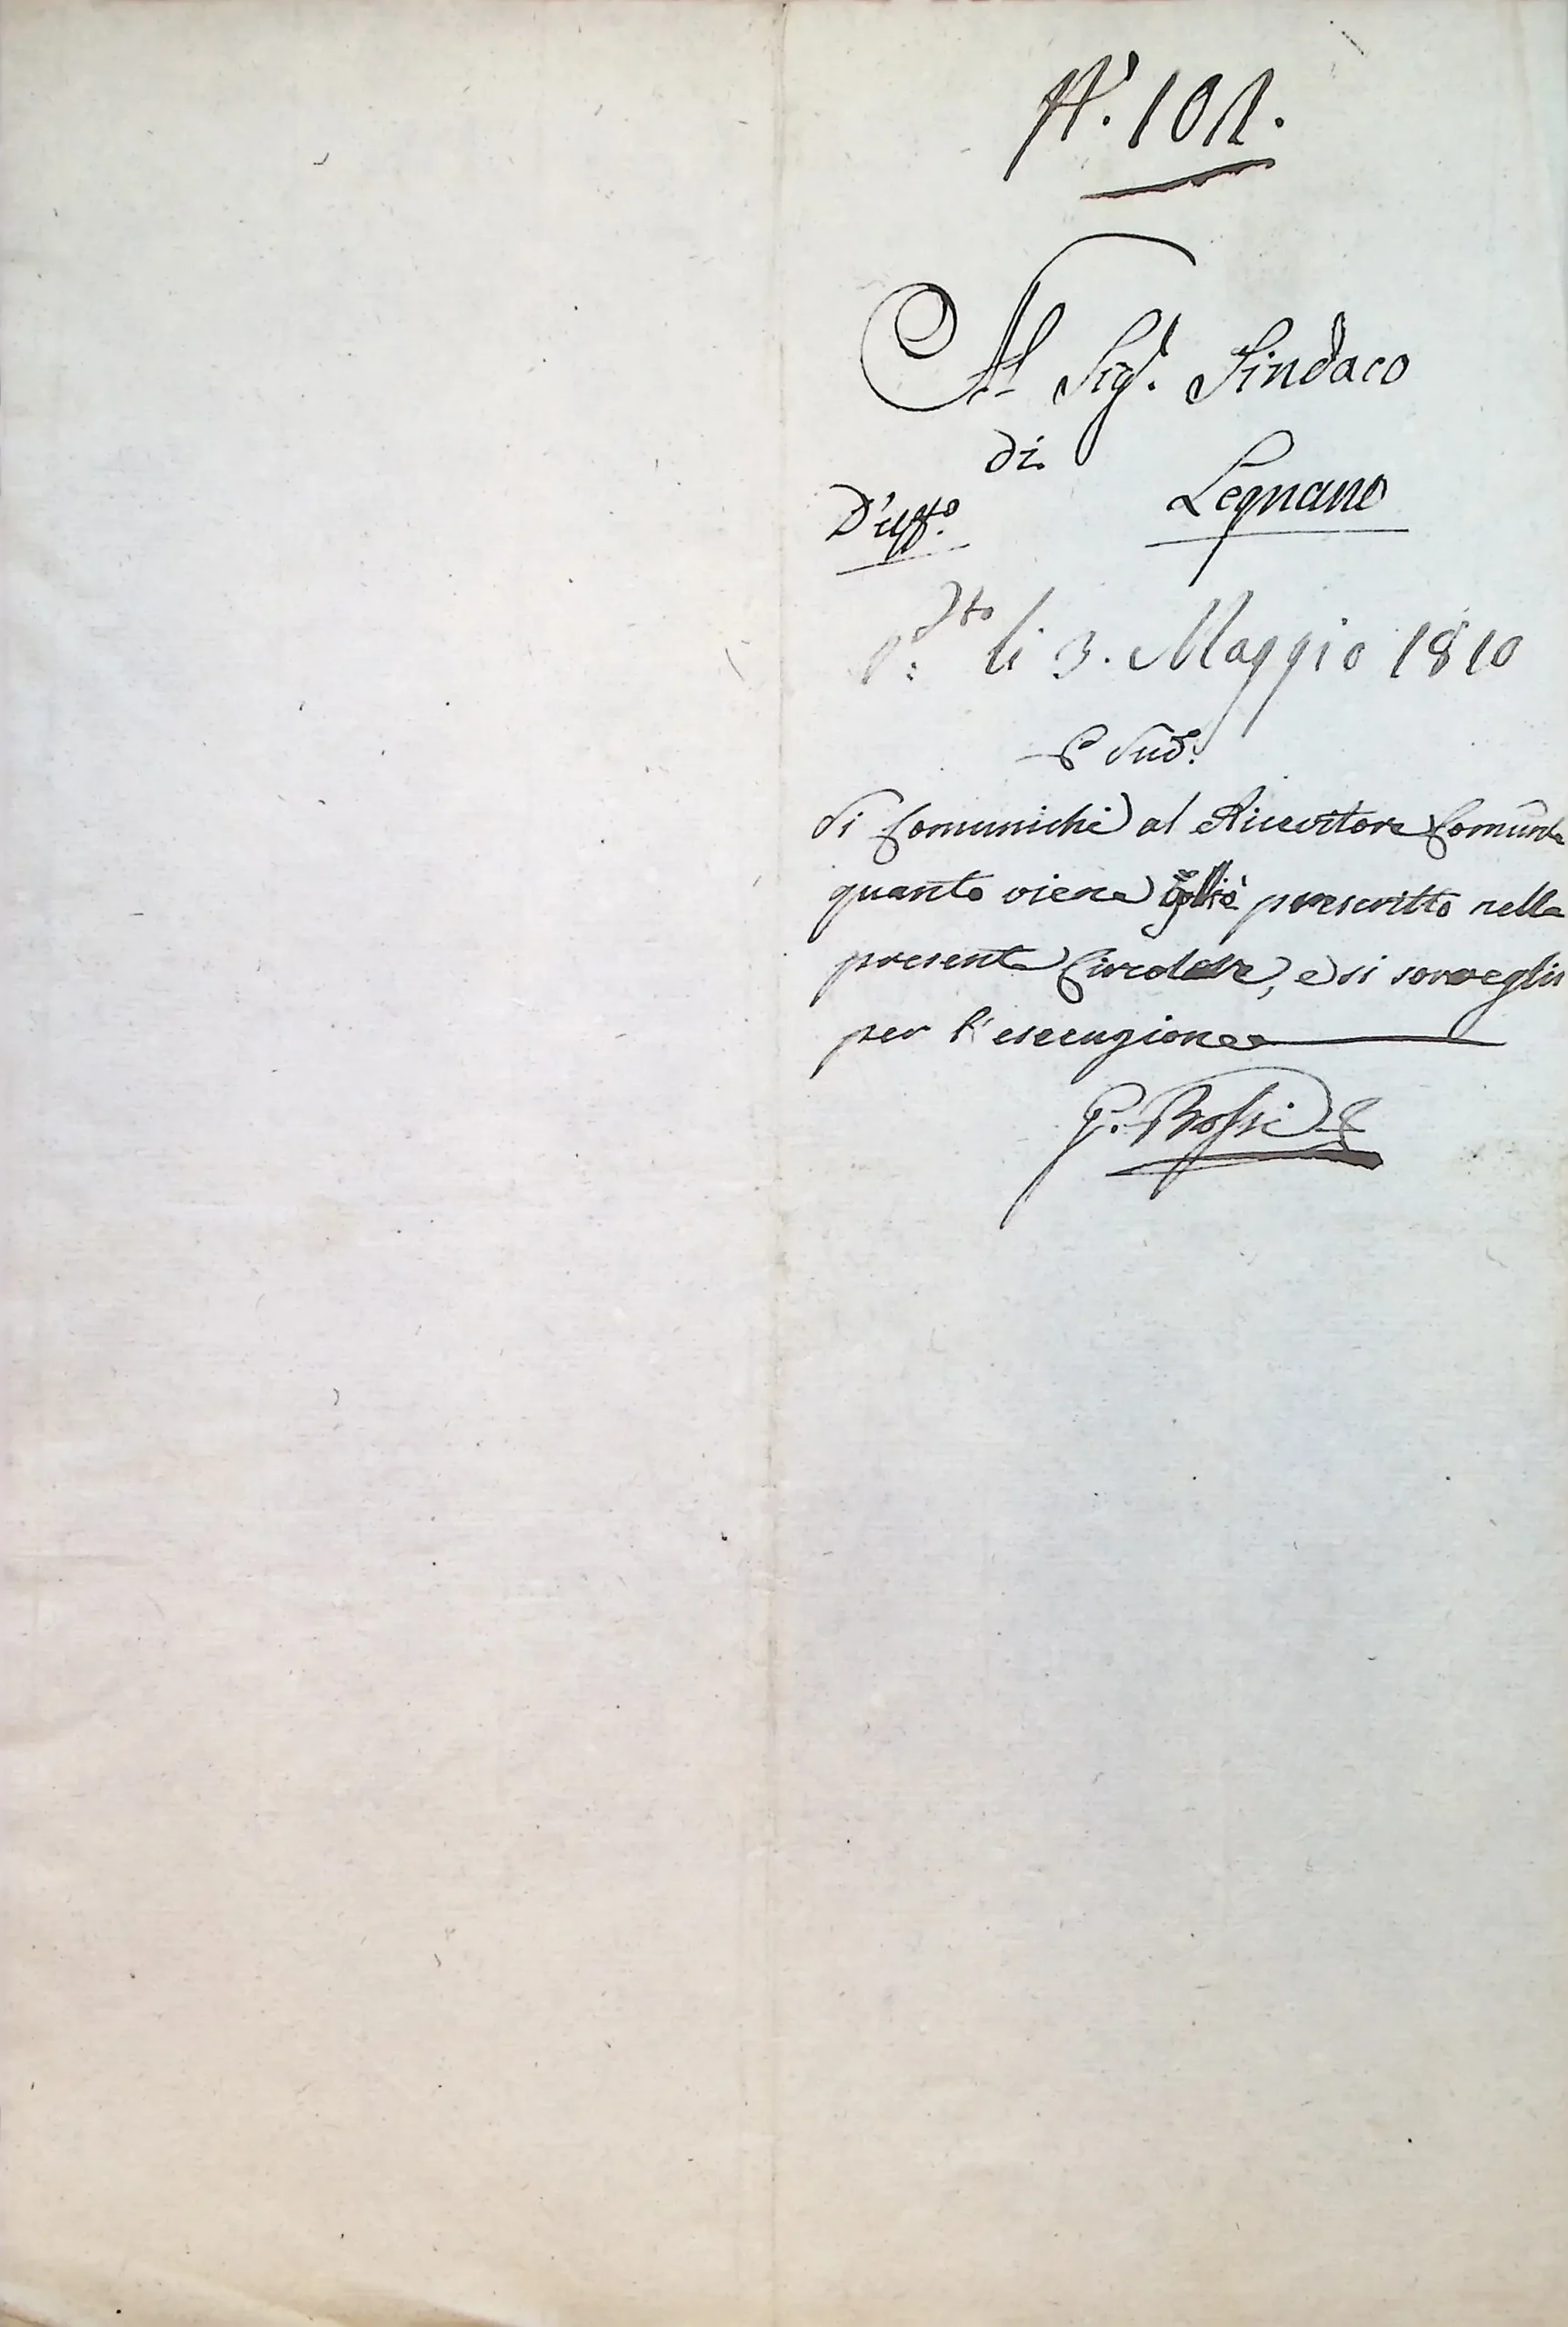 N.° 101.
Al Sig.r Sindaco
di
Legnano
D'uff.o
P.: dto li 3. Maggio 1810
E Sud.
Si Comunichi al Ricevitore Comunle
quanto viene prescritto nella
presente Circolare, e si sorveglii
per l'esecuzione
G. Rossi